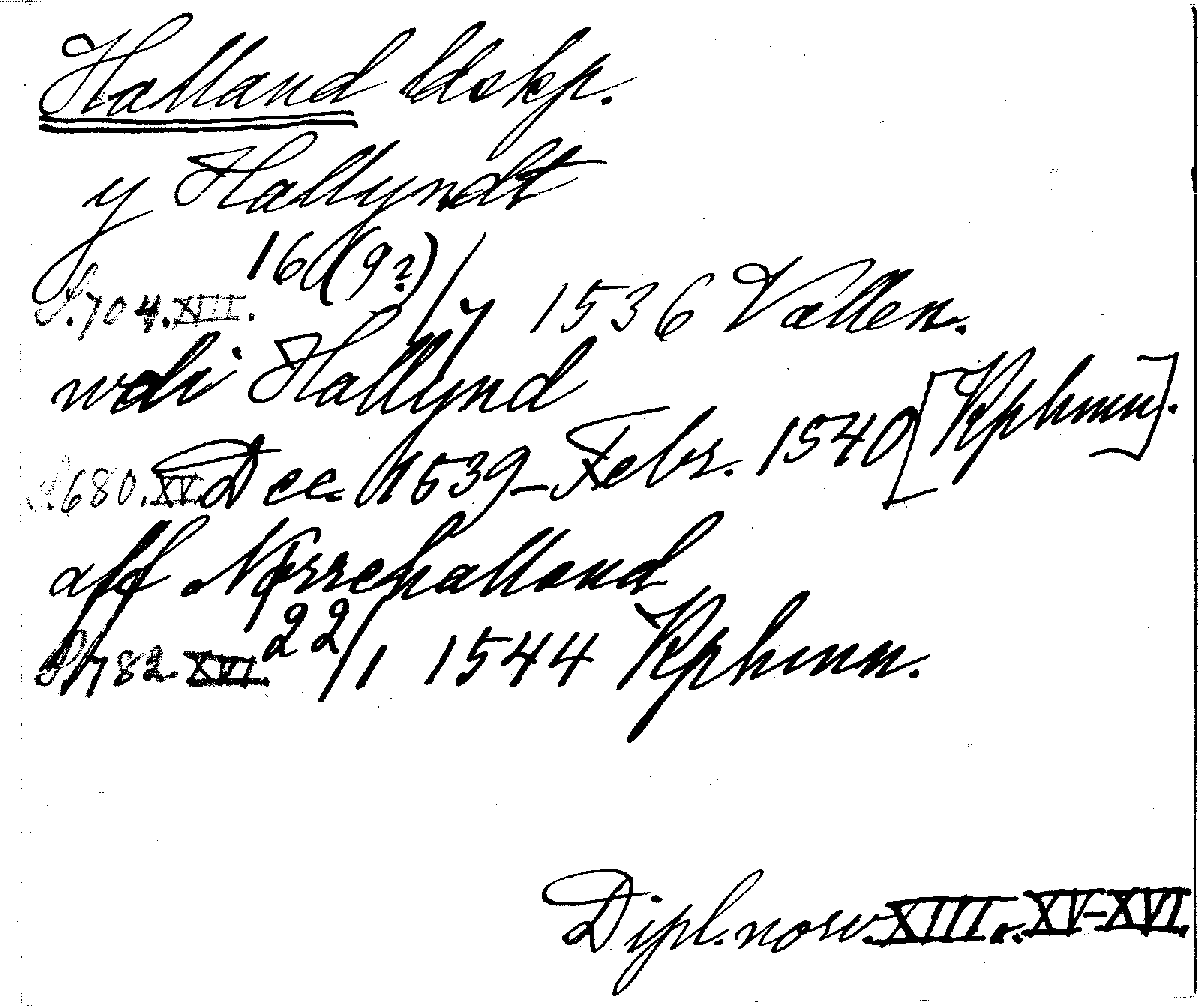 Halland ldskp.
y Hallyndt
S. 704. XIII. 16(9?)/4 1536 Vallen.
wdi Hallynd
S. 680. XV. Dec. 1539–Febr. 1540 [Kphmn].
aff Nørrehalland
S. 782 XVI. 22/1 1544 Kphmn.
Dipl. norv. XIII o. XV–XVI.